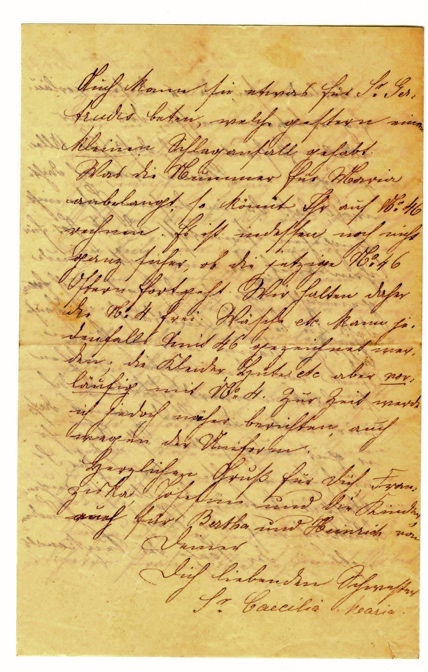 Auch kann sie etwas für Sr. Ger-
trudis beten, welche gestern einen
kleinen Schlaganfall gehabt.
Was die Nummer für Maria
anbelangt, so könnt Ihr auf No. 46
rechnen. Es ist indessen noch nicht
ganz sicher, ob die jetzige No. 46
Ostern fortgeht. Wir halten daher
die No. 4 frei. Wäsche etc. kann je-
denfalls mit 46 gezeichnet wer-
den, die Kleider, Hüte etc aber vor-
läufig mit No. 4. Zur Zeit werde
ich jedoch näher berichten, auch
wegen der Uniform.
Herzlichen Gruß für Dich, Fran-
ziska, Josefine und die Kinder
auch für Bertha und Heinrich von
Deiner
Dich liebenden Schwester
Sr. Caecilia Maria.